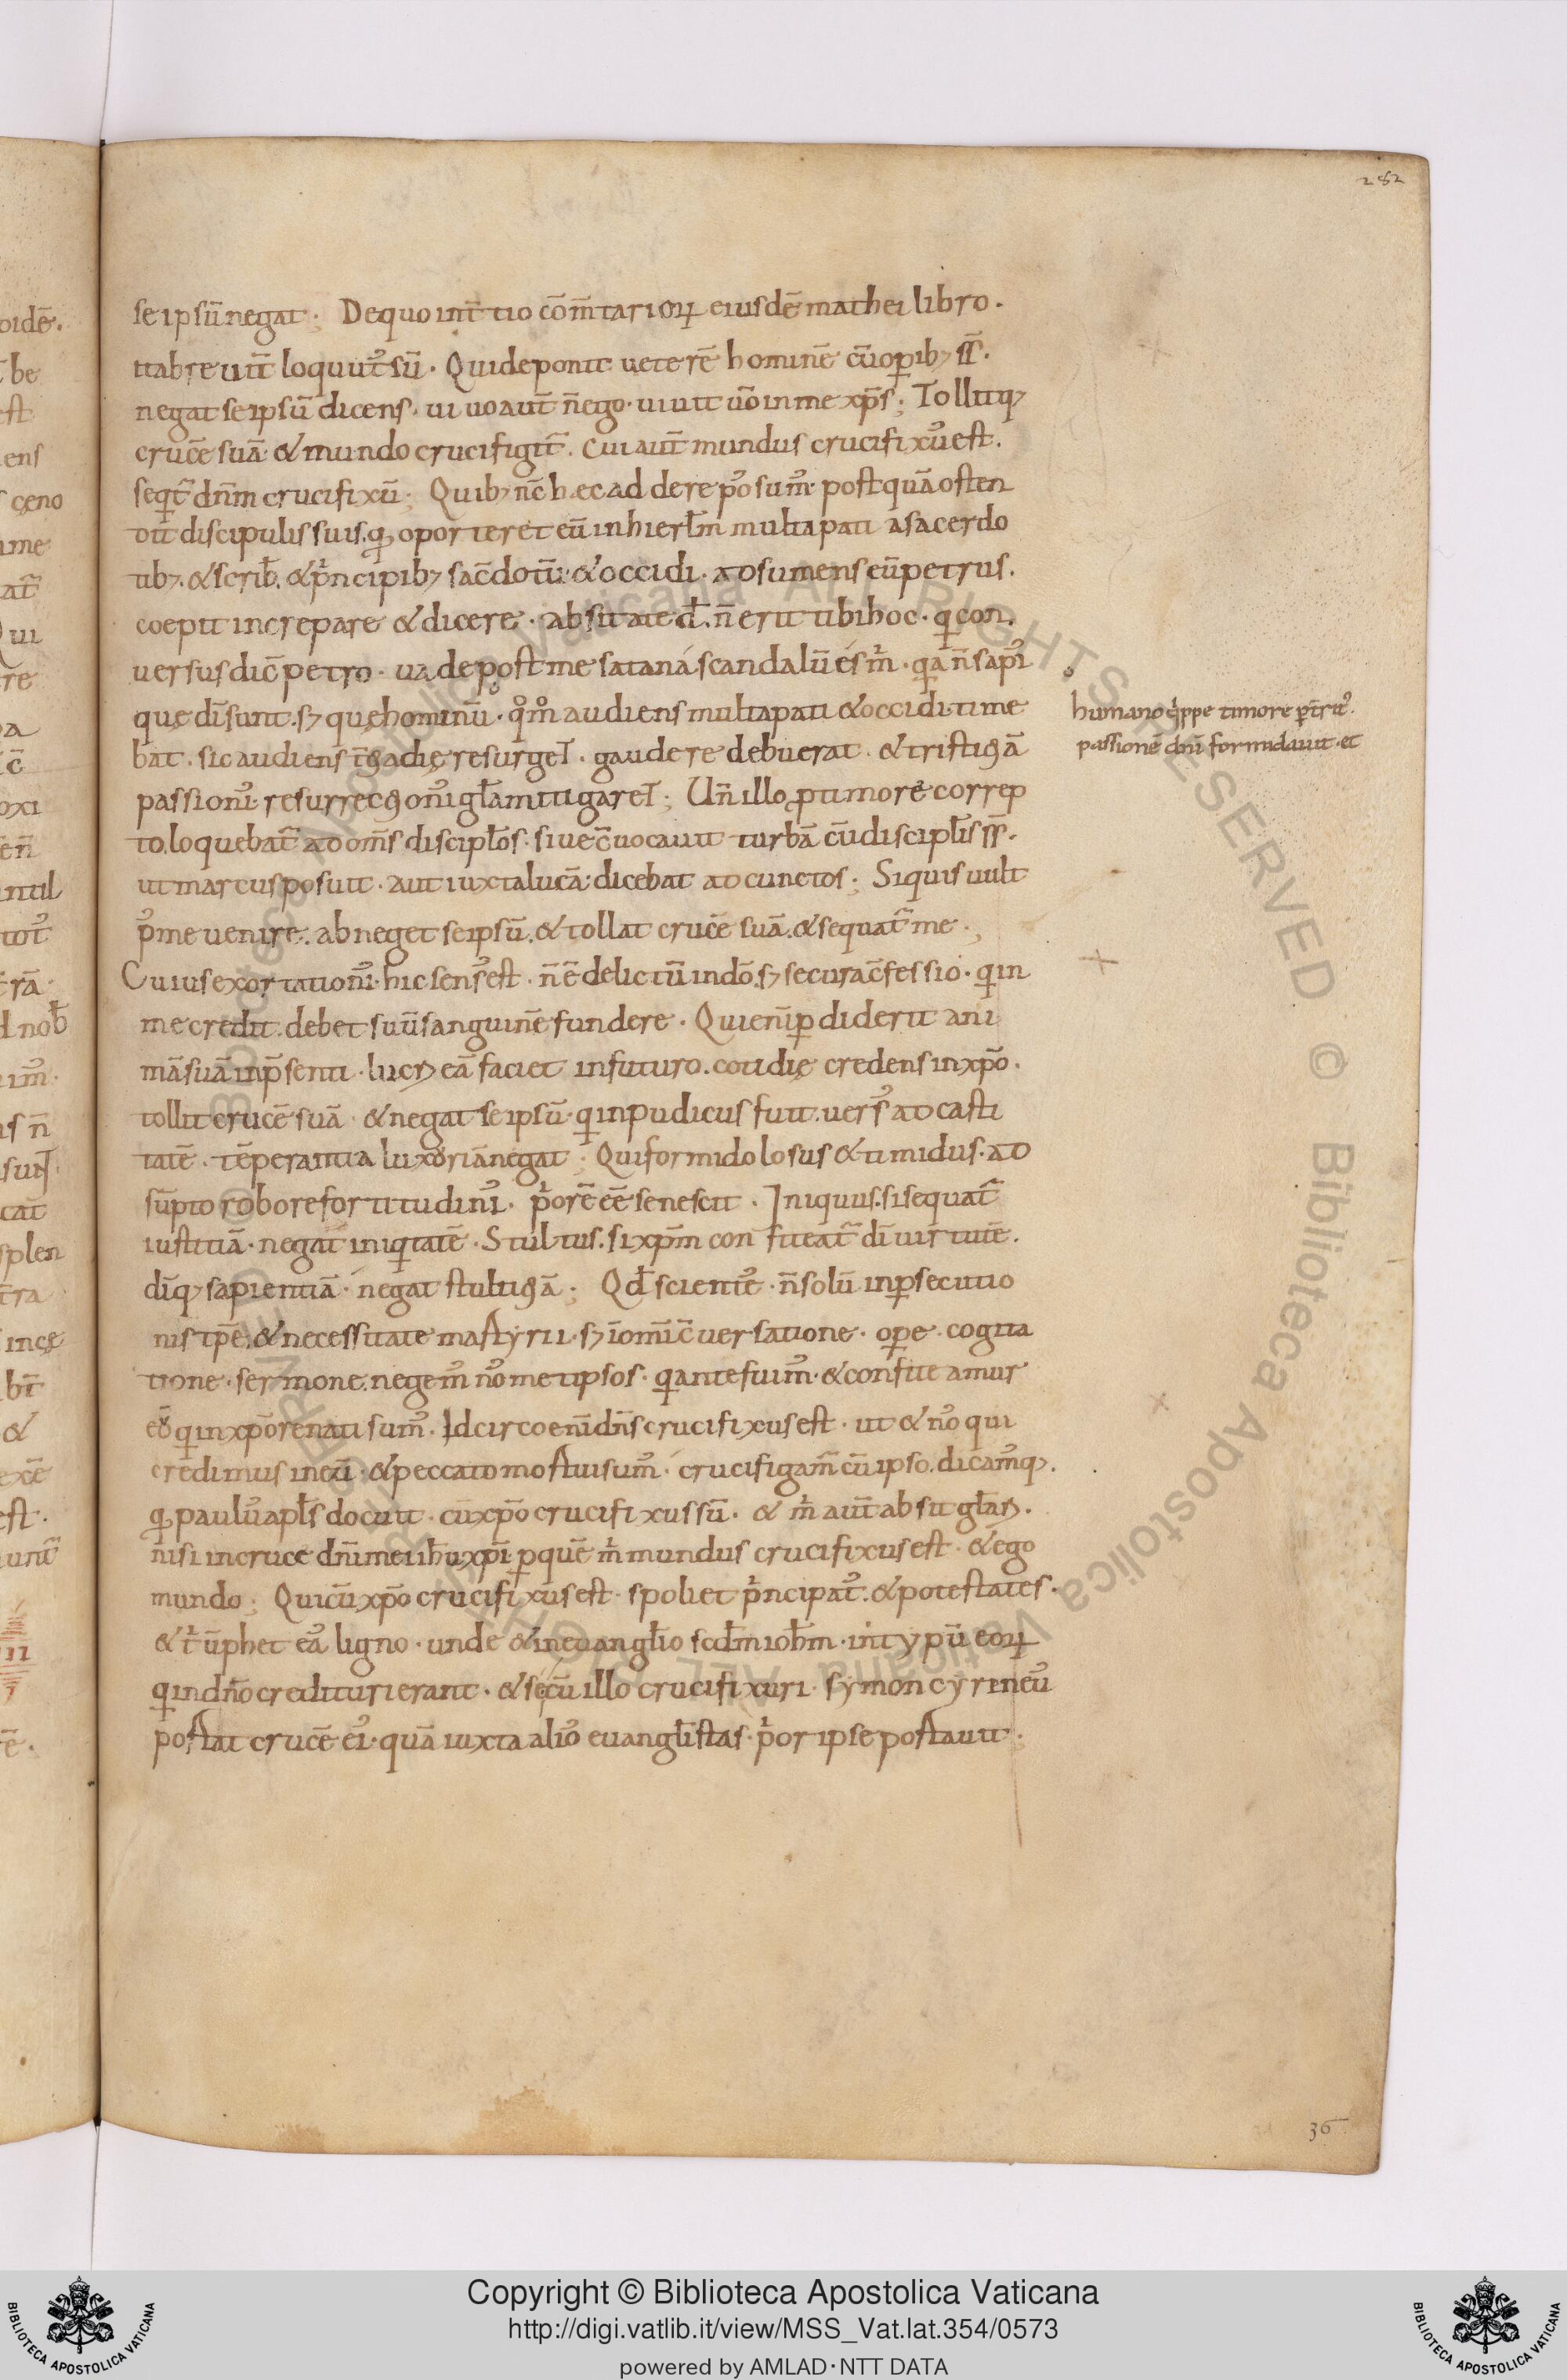 282
se ipsū negat; De quo int̄ tio cōm̄tarioꝝ eiusdē mathei libro.
ita breuit̄ loquut᷒ sū. Qui deponit ueterē hominē cū oꝑib; ss̄.
negat se ipsū dicens. uiuo aut̄ n̄ ego. uiuit uō in me xp̄s; Tollitq;
crucē suā. & mundo crucifigit᷑. Cui aut̄ mundus crucifixu᷒ est.
seqt᷑ dn̄m crucifixū; Quib; nc̄ hec addere po᷒sum᷒. postquā osten
dit discipulis suis. qđ oporteret eū in hierłm multa pati a sacerdo
tib;. & scrib. & pncipib; sac̄dotū. & occidi. adsumens eū petrus.
coepit increpare & dicere. absit a te dn̄e. n̄ erit tibi hoc. qi con
uersus dic̄ petro. uade post me satana scandalū es m̄. qa n̄ sapi᷒
quę dī sunt. s; quę hominū. 
humano qippe timore pt̄rit᷒.
passionē dn̄i formidauit. et
qom̊ audiens multa pati & occidi. time
bat. sic audiens t̄tia die resurget. gaudere debuerat. & tristitiā
passioni᷒ resurrectioni᷒ gła mitigaret; Un̄ illo ꝓ timore correp
to. loquebat᷑ ad om̄s discipłos. siue c̄uocauit turbā cū discipłis ss̄.
ut marcus posuit. aut iuxta lucā. dicebat ad cunctos; Siquis uult
p᷒ me uenire. abneget se ipsū. & tollat crucē suā. & sequat᷑ me;
Cuius exortationi᷒. hic sens᷒ est. n̄ ē delictū in dō. s; secura c̄fessio. qi in
me credit. debet suū sanguinē fundere. Qui eni ꝑdiderit ani
mā suā in p̄senti. lucr; eā faciet in futuro. cotidię credens in xp̄o.
tollit crucē suā. & negat se ipsū. qi inpudicus fuit. uers᷒ ad casti
tatē. tēperantia luxoriā negat; Qui formidolosus & timidus. ad
sūpto robore fortitudini᷒. porē eē se nescit. Iniquus. si sequat᷑
iustitiā. negat iniqtatē. Stultus. si xp̄m confiteat᷑ dī uirtutē.
dīq; sapientiā. negat stultitiā; Qđ scient᷒. n̄ solū in ꝑsecutio
nis tp̄e. & necessitate mastyrii. s; ī om̄i c̄uersatione. oꝑe. cogita
tione. sermone. negem᷒ no᷒met ipsos. qi ante fuim᷒. & confiteamur
eos qi in xp̄o renati sum᷒. Idcirco eni dn̄s crucifixus est. ut & no᷒ qui
credimus in eū. & peccato mostui sum᷒. crucifigam᷑ cū ipso. dicam᷒q;.
qđ paulu᷒ apłs docuit. cū xp̄o crucifixus sū. & m̄ aut̄ absit głari.
nisi in cruce dn̄i mei ihu xp̄i. ꝑ quē m̄ mundus crucifixus est. & ego
mundo; Qui cū xp̄o crucifixus est. spoliet pncipat᷒. & potestates.
& t̄ūphet ea᷒ ligno. unde & in euangłio scđm iohm. in typū eoꝝ
qi in dn̄o credituri erant. & se cū illo crucifixuri. symon cyreneu᷒
postat crucē ei᷒. quā iuxta alio᷒ euangłistas. por ipse postauit;
36
Copyright © Biblioteca Apostolica Vaticana
http://digi.vatlib.it/view/MSS_Vat.lat.354/0573
powered by AMLAD·NTT DATA
BIBLIOTECA APOSTOLICA VATICANA
BIBLIOTECA APOSTOLICA VATICANA